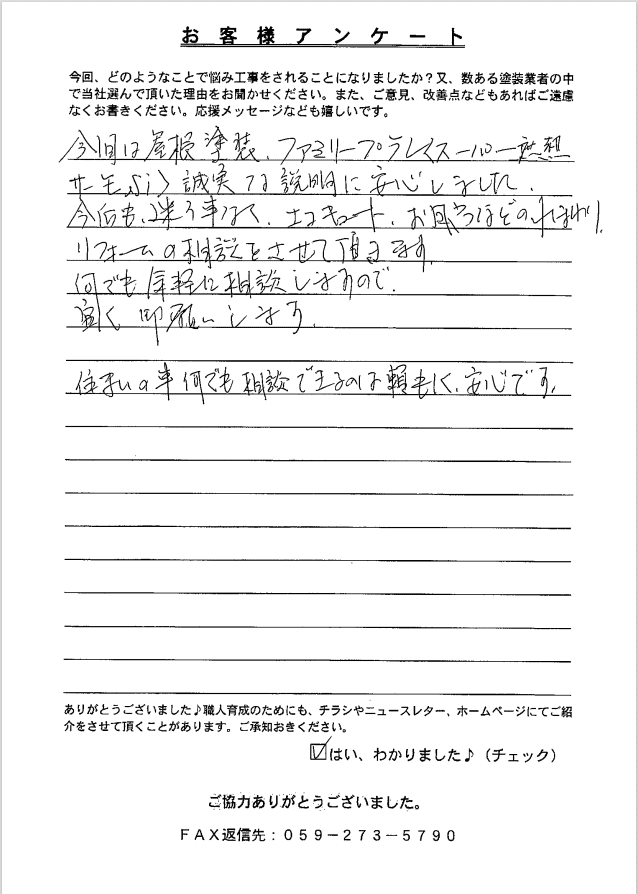 お客様アンケート
今回、どのようなことで悩み工事をされることになりましたか？又、数ある塗装業者の中
で当社選んで頂いた理由をお聞かせください。また、ご意見、改善点などもあればご遠慮
なくお書きください。応援メッセージなども嬉しいです。
今回は屋根塗装、ファミリープラ
誠実な説明に安心しました。
今后も、迷う事なく、エコキュート、お風呂などの水まわり
リフォームの相談をさせて頂きます。
何でも気軽に相談しますので、
宜しく御願いします。
住まいの事何でも相談できるのは頼もしく、安心です。
ありがとうございました♪職人育成のためにも、チラシやニュースレター、ホームページにてご紹
介をさせて頂くことがあります。ご承知おきください。
☑はい、わかりました♪（チェック）
ご協力ありがとうございました。
ＦＡＸ返信先：０５９－２７３－５７９０